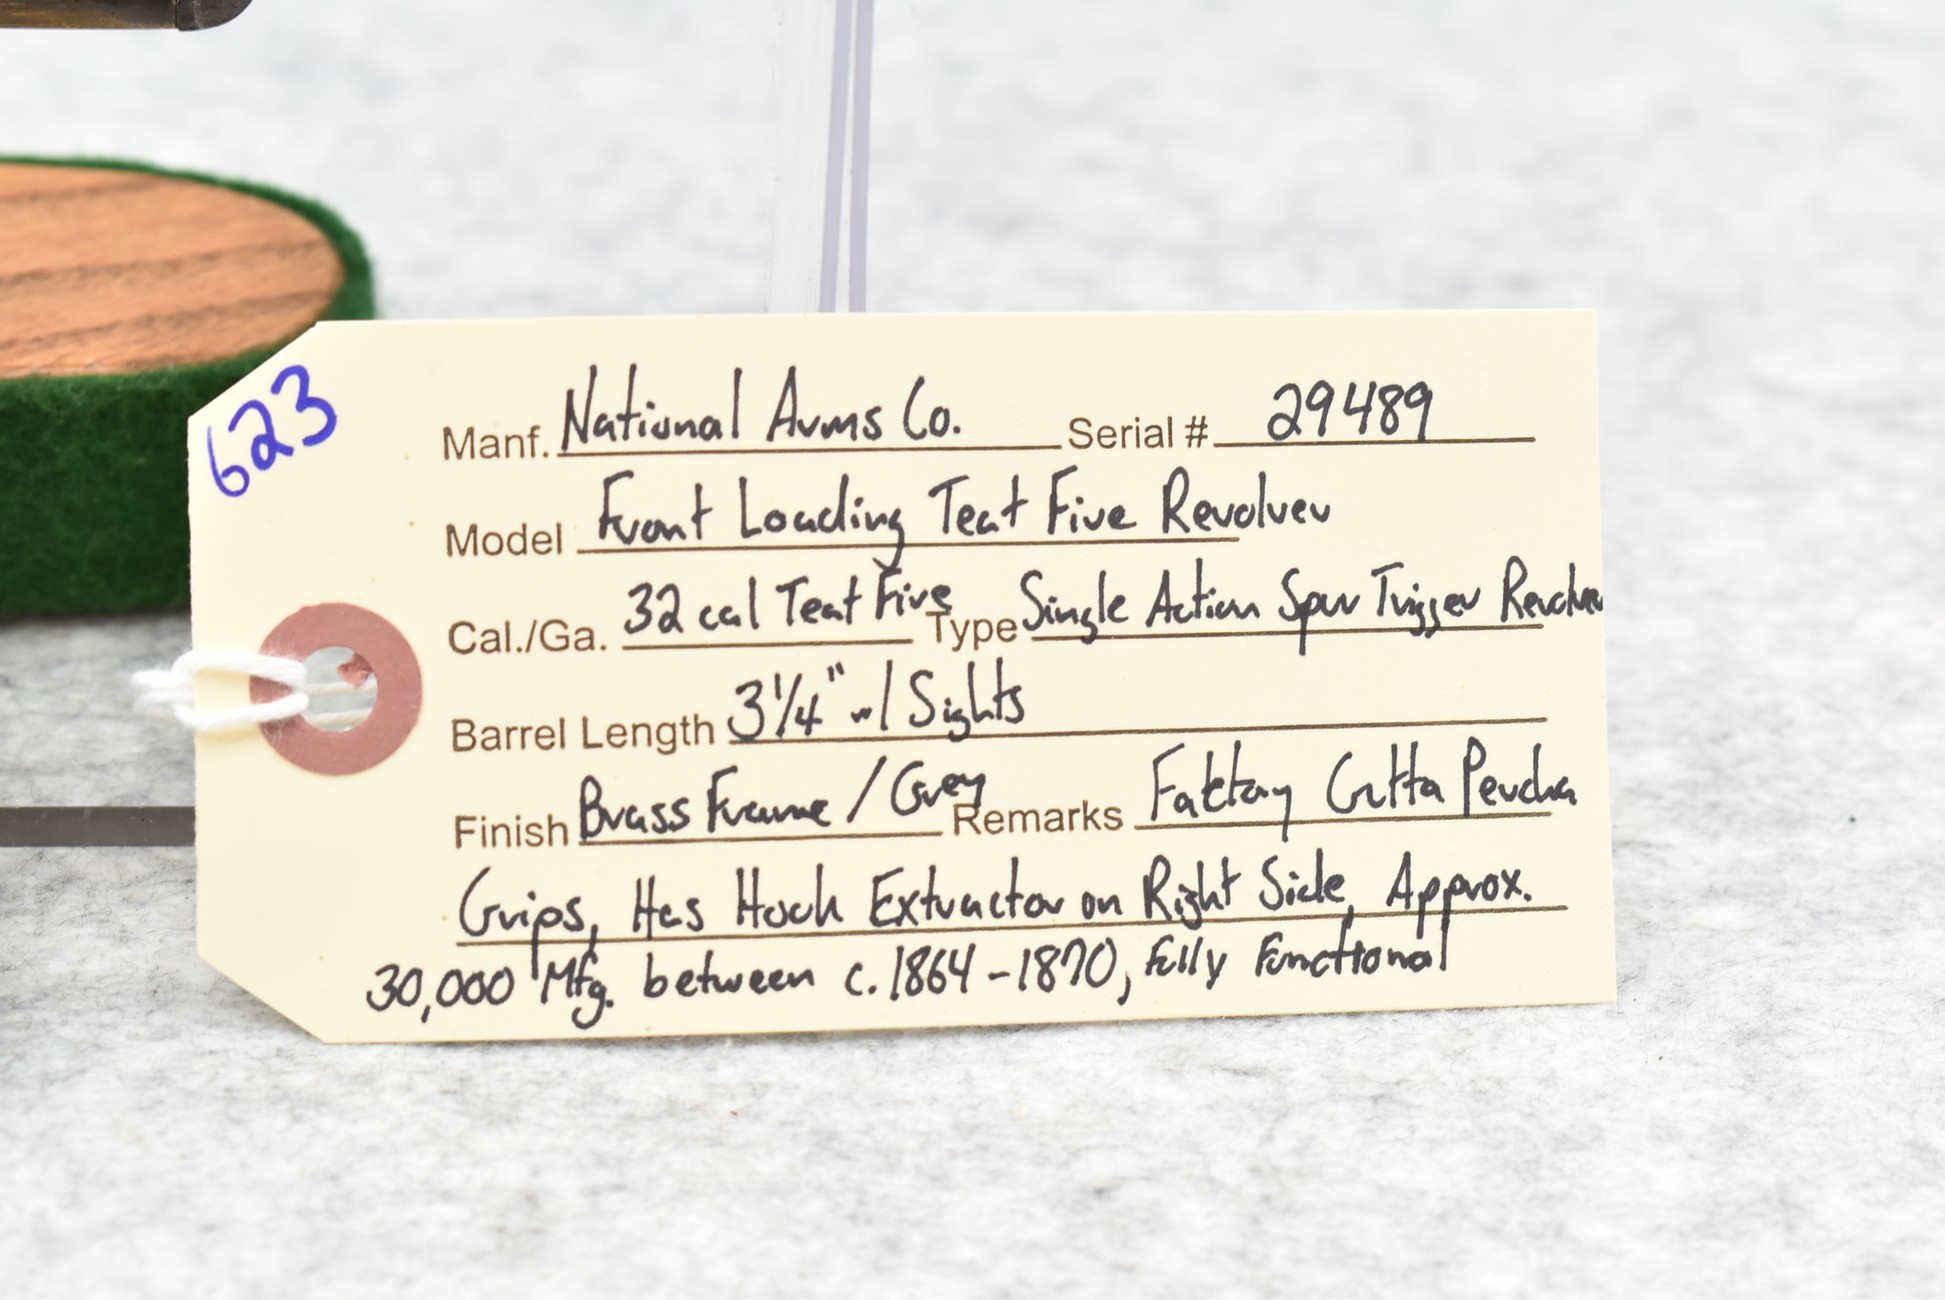 623
Manf. National Arms Co. Serial # 29489
Model Front Loading Teat Five Revolver
Cal./Ga. 32 cal Teat Five Type Single Action Spur Trigger Revolver
Barrel Length 3 1/4" w/ Sights
Finish Brass Frame / Grey Remarks Faktory Gutta Percha
Grips, Has Hook Extractor on Right Side, Approx.
30,000 Mfg. between c. 1864-1870, Fully Functional